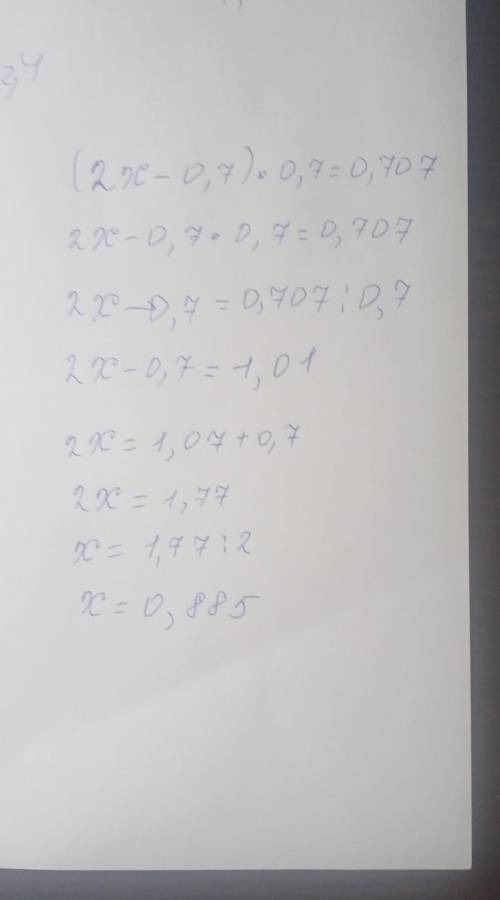 3,4
(2x-0,7)•0,7=0,707
2x-0,7•0,7=0,707
2x-0,7=0,707:0,7
2x-0,7=1,01
2x=1,07+0,7
2x=1,77
x=1,77:2
x=0,885